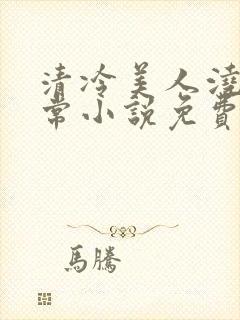 清冷美人澆
常小說免費
馬騰